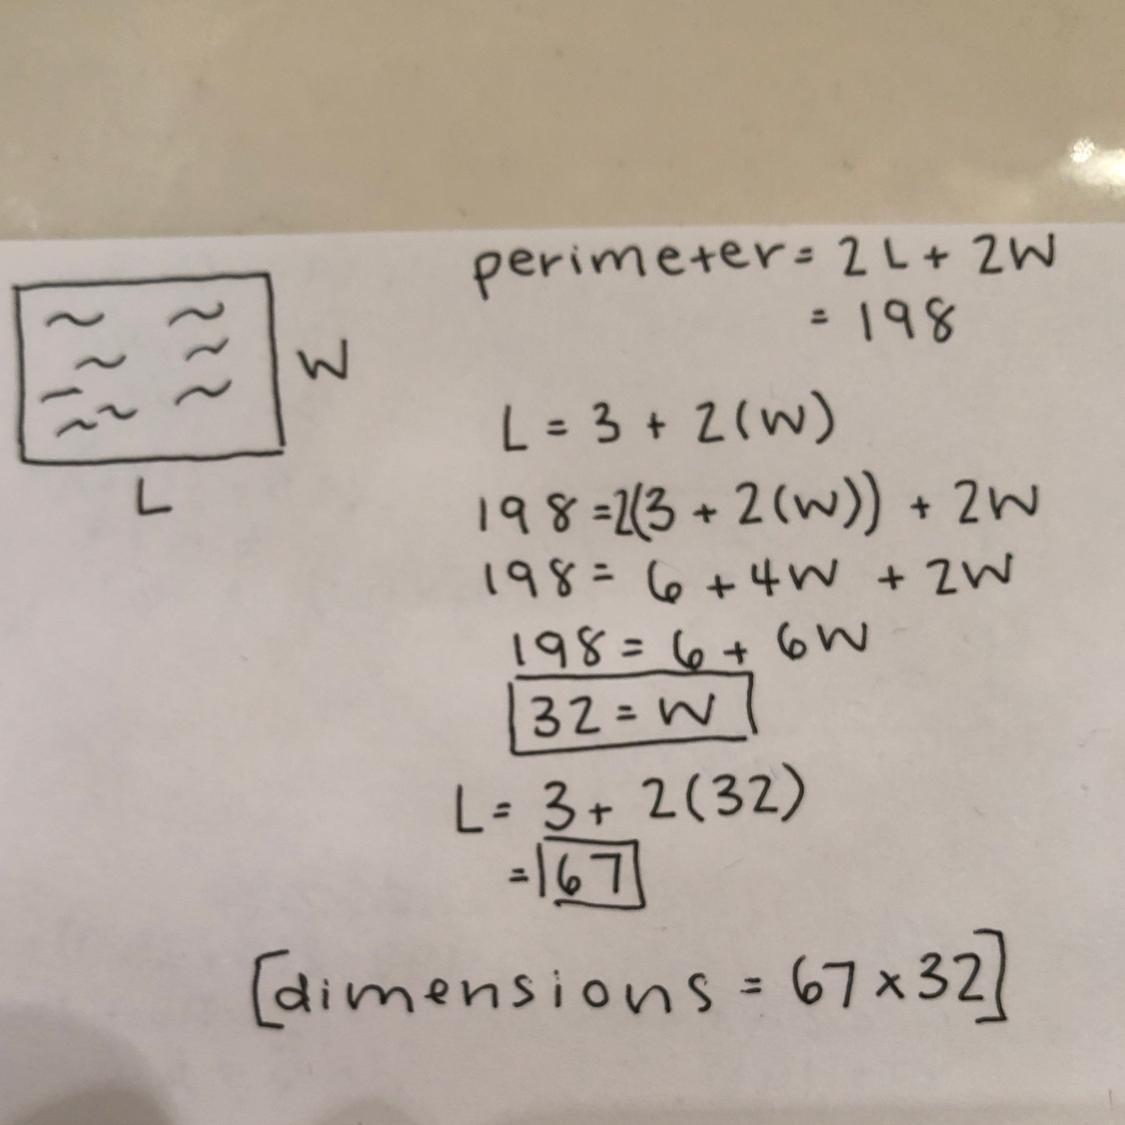 perimeter = 2L + 2W
= 198
W
L
L = 3 + 2(W)
198 = 2(3 + 2(W)) + 2W
198 = 6 + 4W + 2W
198 = 6 + 6W
32 = W
L = 3 + 2(32)
= 67
[dimensions = 67 x 32]